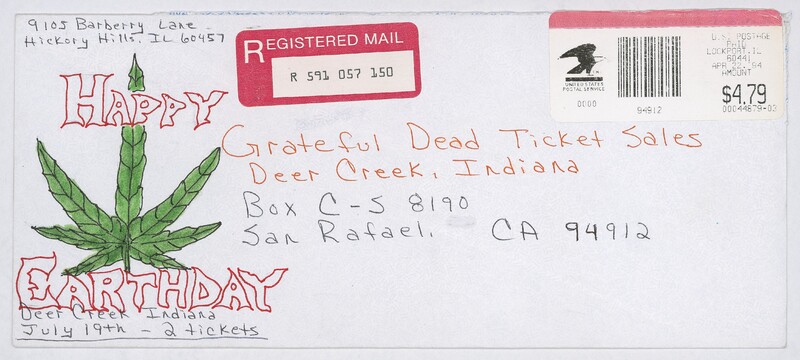 9105 Barberry Lane
Hickory Hills, IL 60457
REGISTERED MAIL
R 591 057 150
UNITED STATES
POSTAL SERVICE
0000
94912
U.S. POSTAGE
LOCKPORT, IL
60441
APR 22, '94
AMOUNT
$4.79
00044879-03
HAPPY
EARTHDAY
Grateful Dead Ticket Sales
Deer Creek, Indiana
Box C-S 8190
San Rafael, CA 94912
Deer Creek Indiana
July 19th - 2 tickets